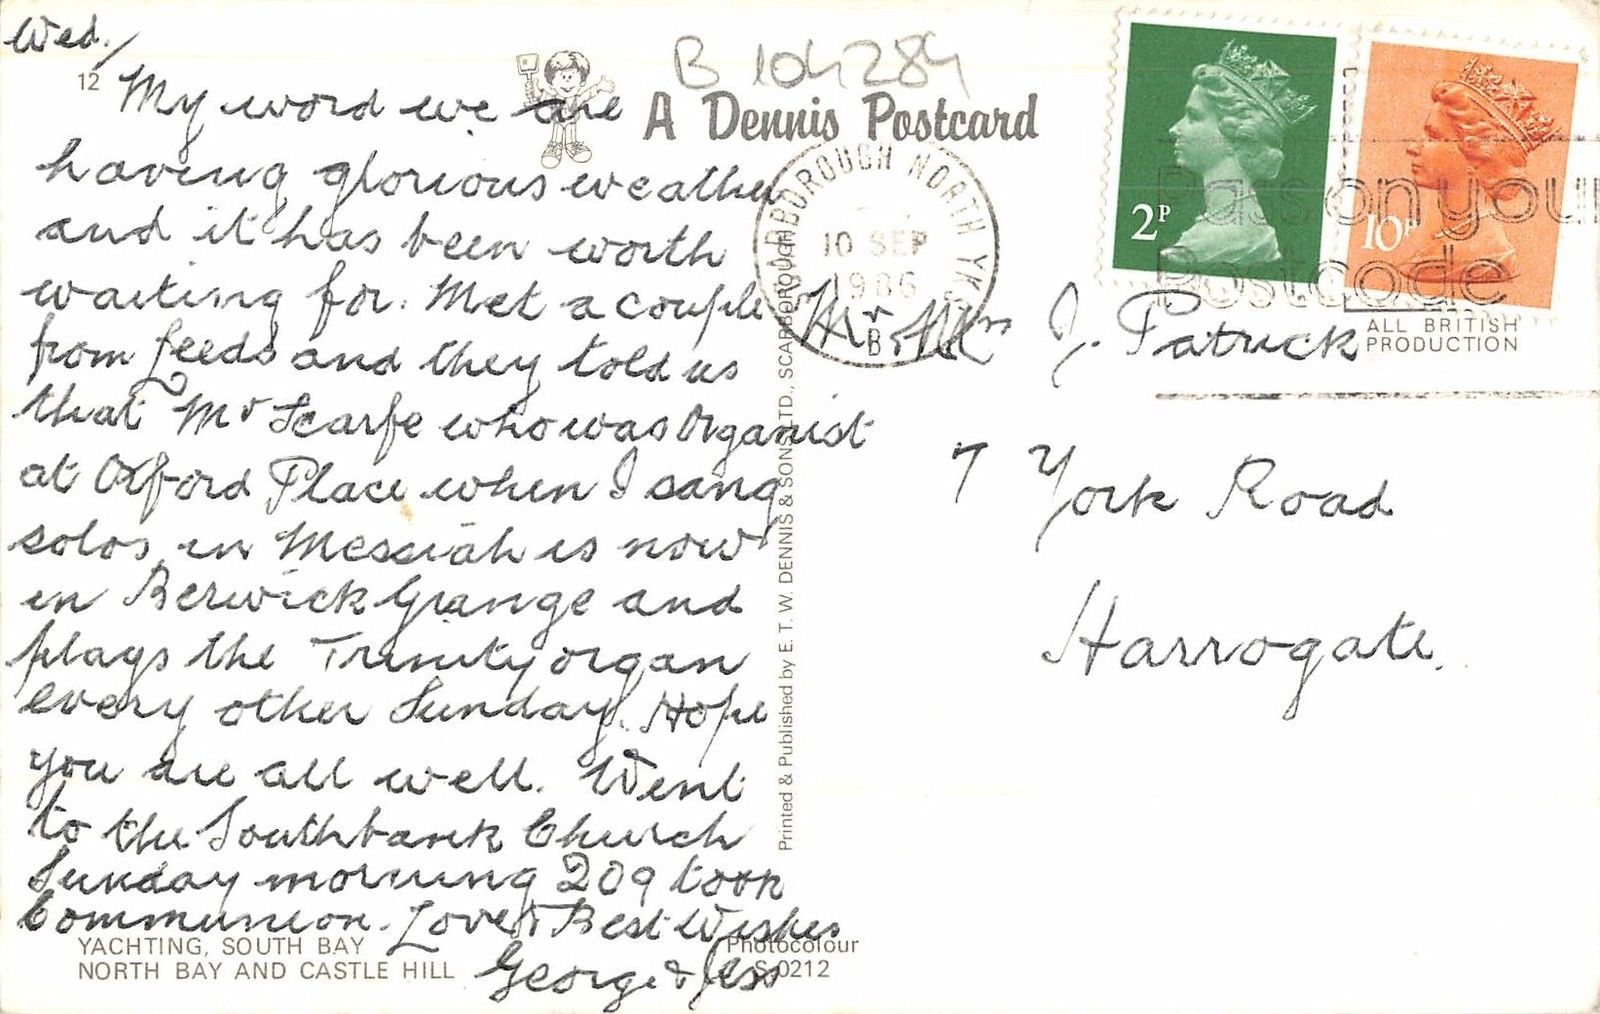 Wed./
12
My word we are
having glorious weather
and it has been worth
waiting for. Met a couple
from Leeds and they told us
that Mr Scarfe who was Organist
at Oxford Place when I sang
solos in Messiah is now
in Berwick Grange and
plays the Trinity organ
every other Sunday. Hope
you are all well. Went
to the Southbank Church
Sunday morning 209 took
Communion. Love & Best Wishes
George & Jess
YACHTING, SOUTH BAY
NORTH BAY AND CASTLE HILL
B 104284
A Dennis Postcard
SCARBOROUGH NORTH YKS
10 SEP
1986
B
Printed & Published by E. T. W. DENNIS & SONS LTD., SCARBOROUGH
Photocolour
S.0212
2P
10P
Pass on your
Postcode
ALL BRITISH
PRODUCTION
Mr & Mrs J. Patrick
7 York Road
Harrogate.